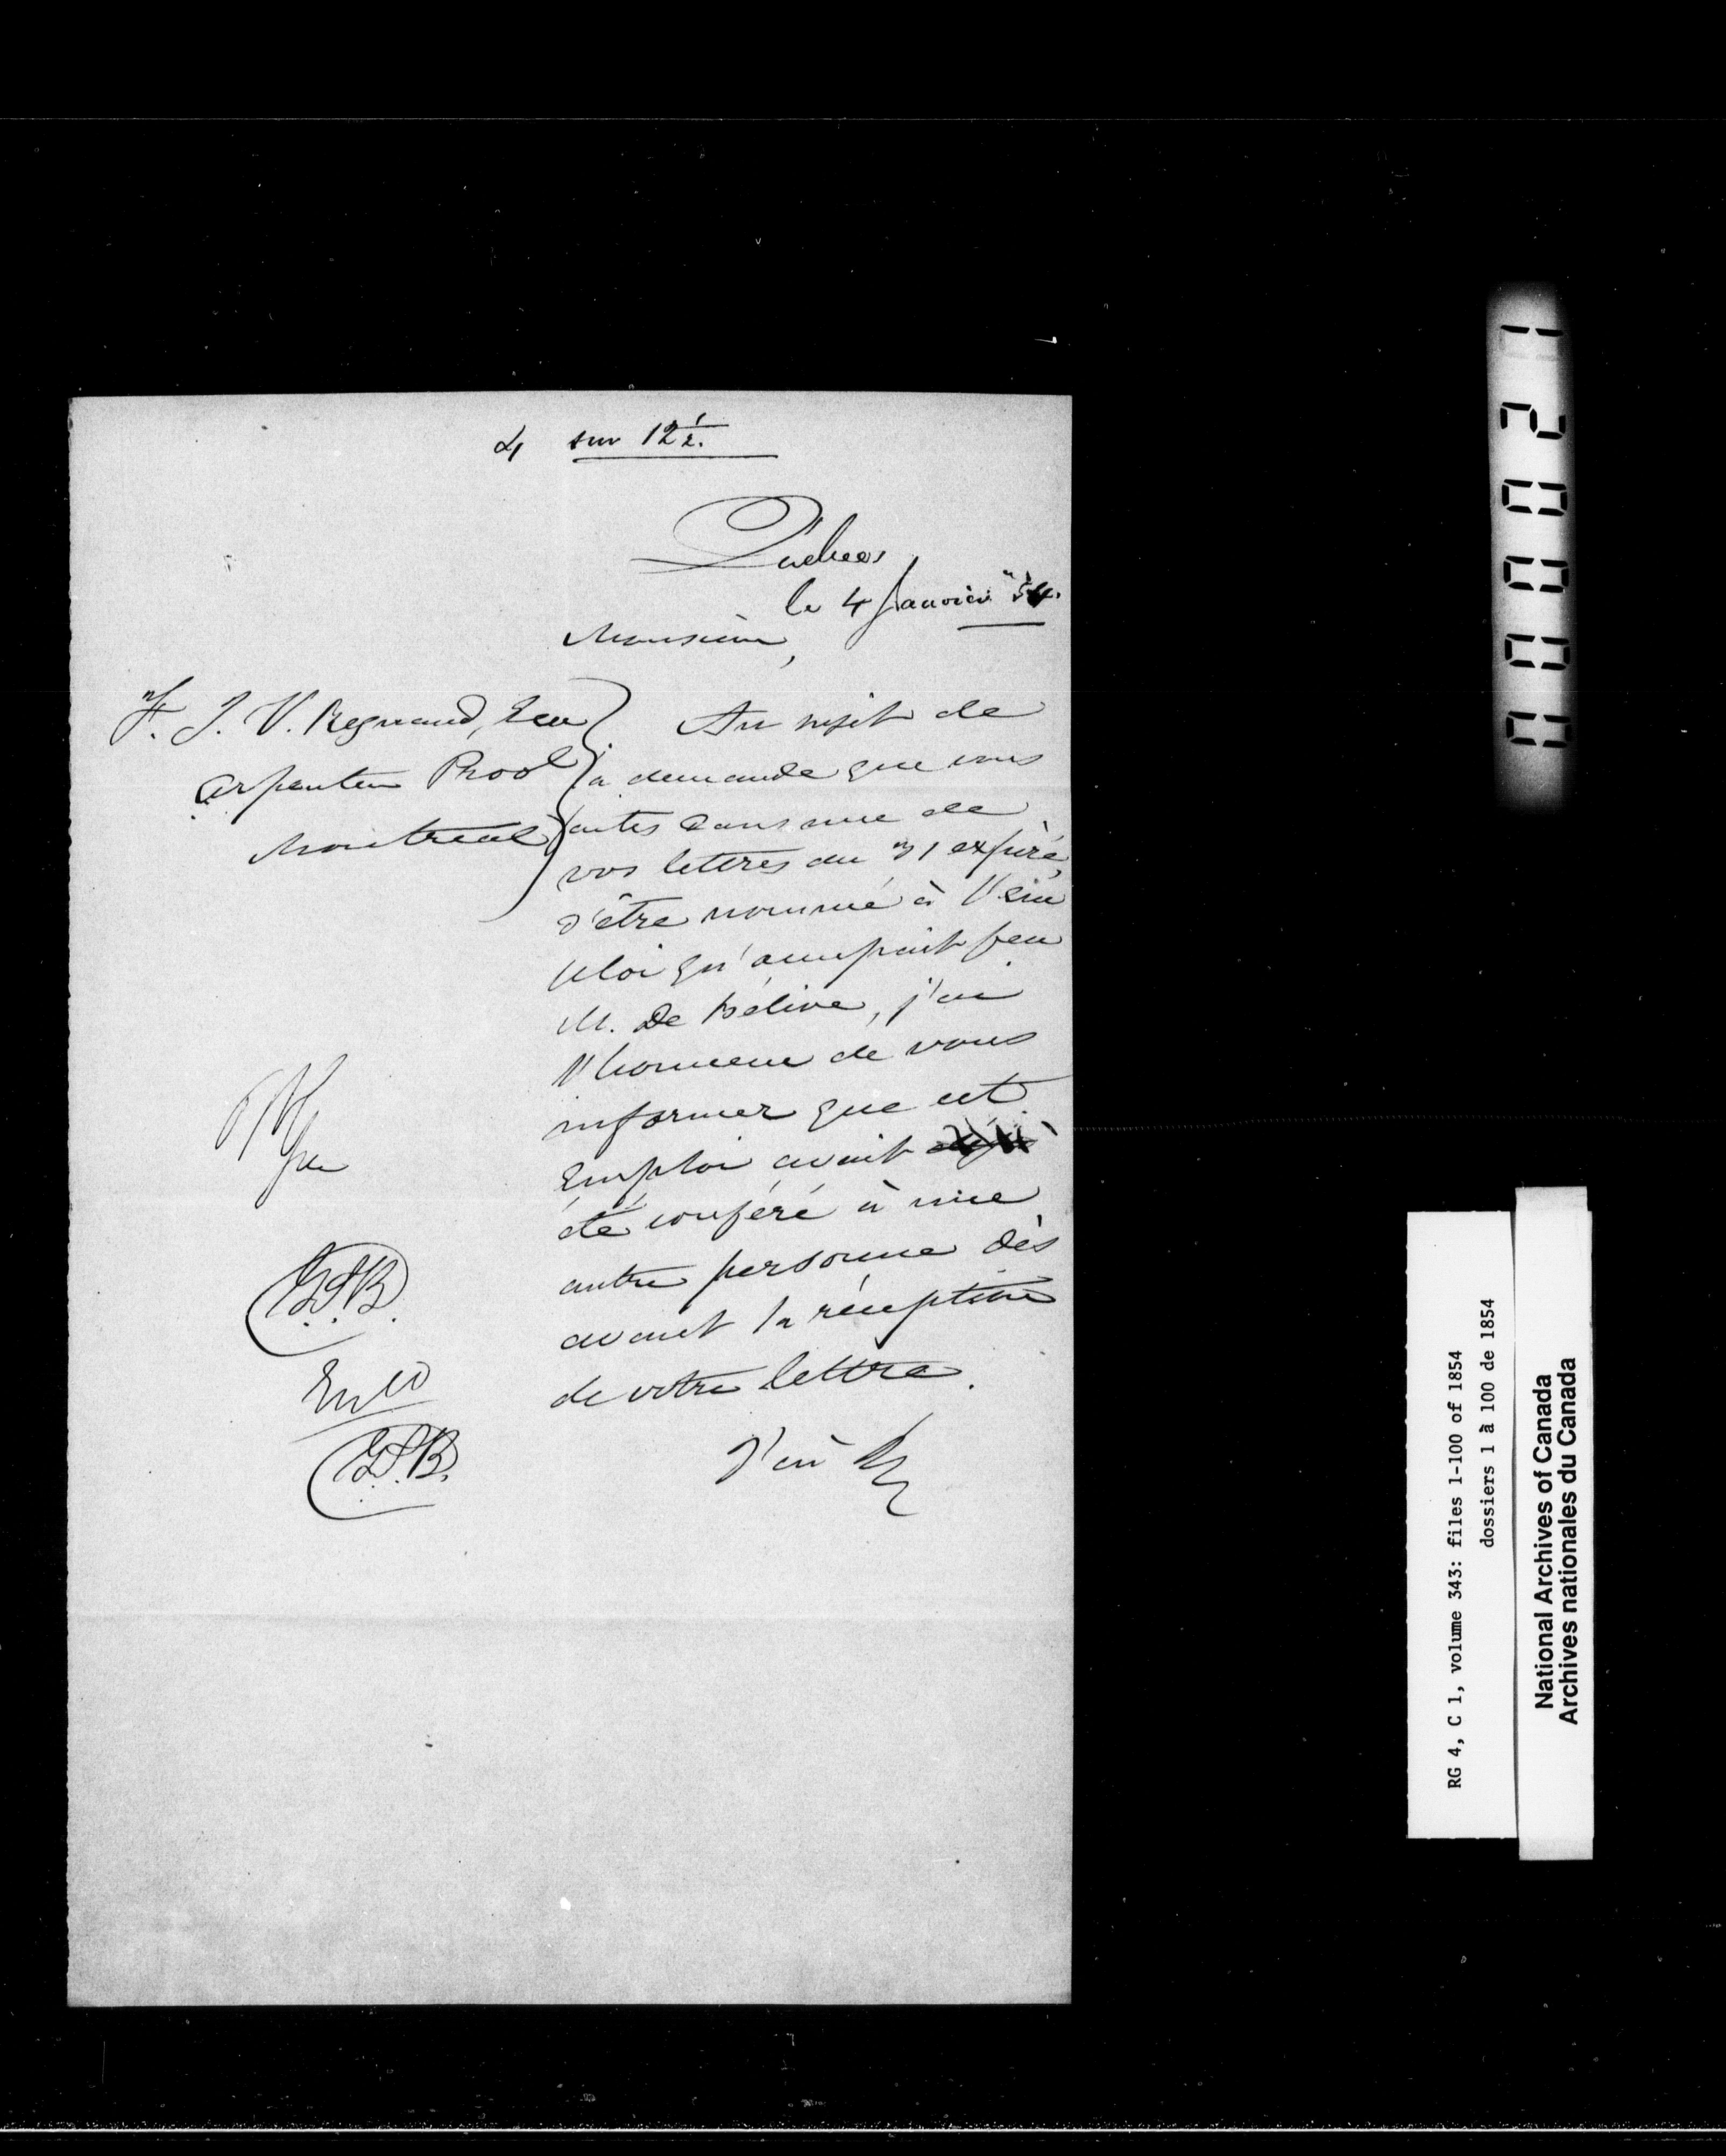 4 sur 12 1/2.
Québec,
le 4 Janvier '54.
Monsieur,
F. J. V. Regnaud, Ecu
Arpenteur Provl
Montreal
Au sujet de
la demande que vous
faites dans une de
vos lettres du 31 expiré,
d'être nommé à l'em
ploi qu'occupait feu
M. De Bélive, j'ai
l'honneur de vous
informer que cet
Emploi avait
été conféré à une
autre personne dès
avant la réception
de votre lettre.
J'ai &c
G.P.B.
End
G.P.B.
000021
RG 4, C 1, volume 343: files 1-100 of 1854
dossiers 1 à 100 de 1854
National Archives of Canada
Archives nationales du Canada